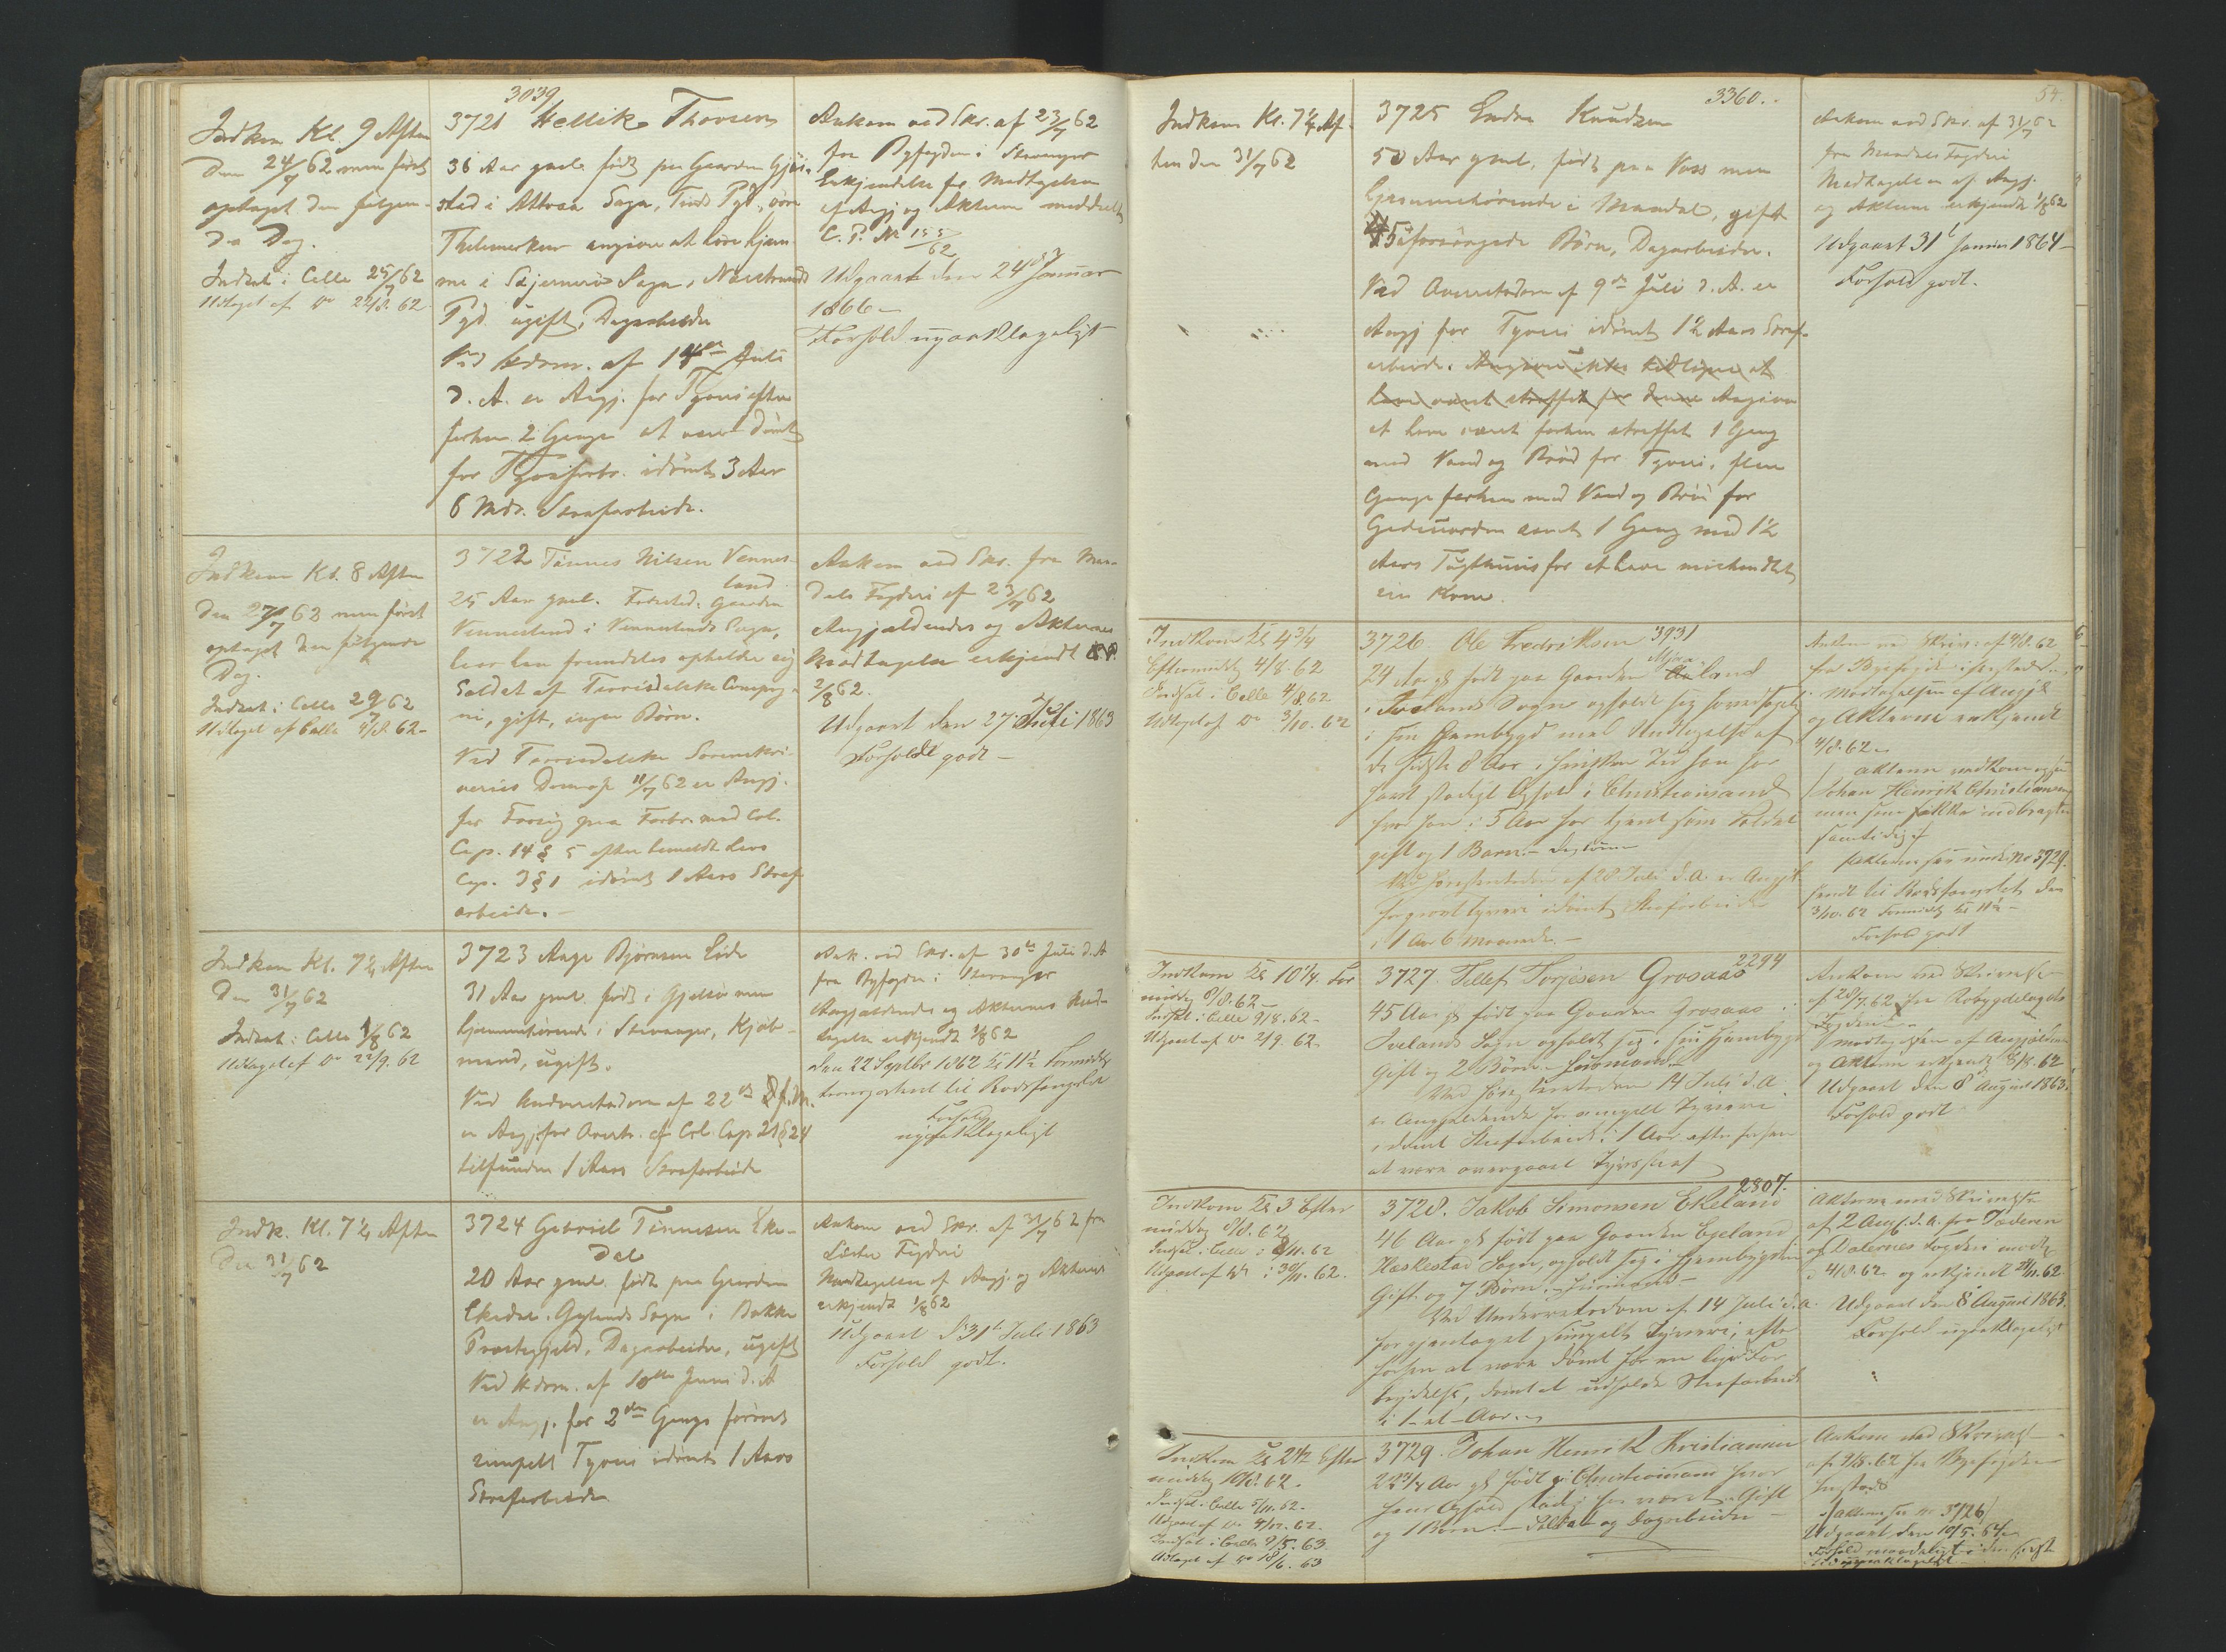 3039
Indkom Kl. 9 Aften
den 24/7 62 men först
optaget den følgen-
de Dag.
Indsat i Celle 25/7 62
Udtaget af do 22/8. 62.
3721 Hellik Thovsen
36 Aar gml. født paa Gaarden
stad i Attraa Sogn, Tinds Pgd., øvre
Thelemarken angiver at høre hjem-
me i Skjernerø Sogn, Nærstrands
Pgd. ugift, Dagarbeider
Ved Hdom. af 14de Juli
d. A. er Angj. for Tyveri efter
forhen 2 Gange at være dømt
for idømt 3 Aar
6 Mdr. Strafarbeide.
Ankom ved Skr. af 23/7 62
fra Byfogden i Stavanger
Erkjendelse for Modtagelsen
af Angj. og Akterne meddeelt
C. P. No 155/62
Udgaaet den 24de Januar
1866 –
Forhold upaaklageligt
Indkom Kl. 8 Aften
den 27/7 62 men først
optaget den følgende
Dag.
Indsat i Celle 29/7 62
Udtaget af Celle 4/8. 62 –
3722 Tønnes Nilsen Vennes-
land
25 Aar gml. Fødested: Gaarden
Vennesland i Venneslands Sogn,
hvor han fremdeles opholder sig
Soldat af Torrisdalske Compag-
ni, gift, ingen Børn.
Ved Torrisdalske Sorenskri-
veries Dom af 11/7 62 er Angj.
for Forsøg paa Forbr. mod Crl.
Cap. 14 § 5 efter bemeldte Lovs
Cap. 3 § 1 idømt 1 Aars Straf-
arbeide. –
Ankom ved Skr. fra Man-
dals Fogderi af 23/7 62
Angjældendes og Akternes
Modtagelse erkjendt
2/8 62.
Udgaaet den 27 Juli 1863
Forholdt godt –
Indkom Kl. 7½ Aften
den 31/7 62
Indsat i Celle 1/8 62
Udtaget af do 22/9. 62
3723 Aage Bjørnsen Eide
31 Aar gml. født i Gjelsø men
hjemmehørende i Stavanger, Kjøb-
mand, ugift.
Ved Underretsdom af 22de
er Angj. for Overtr. af Crl. Cap 21 § 24
tilfunden 1 Aars Strafarbeide
Ank. ved Skr. af 30te Juli d. A
fra Byfogden i Stavanger
Angjældendes og Akternes Mod-
tagelse erkjendt 1/8 62
den 22 Septbr 1862 Kl 11½ Formiddag
transporteret til Bodsfængslet
Forhold
upaaklageligt
Indk. Kl. 7½ Aften
Den 31/7 62
3724 Gabriel Tønnesen Eke-
dal
20 Aar gml. født paa Gaarden
Ekedal, Gylands Sogn i Bakke
Præstegjeld, Dagarbeider, ugift
Ved Hdom. af 10de Juni d. A
er Angj. for 2den Gangs forøvet
simpelt Tyveri idømt 1 Aars
Strafarbeide
Ankom ved Skr. af 31/7 62 fra
Lister Fogderi
Modtagelsen af Angj. og Akterne
erkjendt 1/8 62
Udgaaet d. 31te Juli 1863
Forhold godt.
54.
3360.
Indkom Kl. 7½ Af-
ten den 31/7 62
3725 Endre Knudsen
50 Aar gml. født paa Voss men
hjemmehørende i Mandal, gift
5 uforsørgede Børn, Dagarbeider.
Ved Overretsdom af 9de Juli d. A. er
Angj for Tyveri idømt 1½ Aars Straf-
arbeide. Angiver ikke tidligere at
have været straffet før denne Angiver
at have været forhen straffet 1 Gang
med Vand og Brød for Tyveri, flere
Gange forhen med Vand og Brød for
Gadeuorden samt 1 Gang med 1½
Aars Tugthuus for at have mishandlet
sin Kone.
Ankom ved Skr. af 31/7 62
fra Mandals Fogderi
Modtagelsen af Angj.
og Akterne erkjendt 1/8 62
Udgaaet 31te Januar 1864 –
Forhold godt.
Indkom Kl 4 3/4
Eftermiddag 4/8 62
Indsat i Celle 4/8 62
Udtaget af do 3/10. 62
3726. Ole Fredriksen 3931
24 Aar gl født paa Gaarden land
i Sogn opholdt sig hovedsagelig
i sin Hjembygd med Undtagelse af
de sidste 8 Aar i hvilken Tid han har
havt stadigt Ophold i Christiansand
hvor han i 5 Aar har tjent som Soldat
gift og 1 Barn. –
Ved Høiesteretsdom af 28 Juli d. A. er Angjl
for grovt Tyveri idømt Strafarbeide
i 1 Aar 6 Maaneder. –
Ankom ved Skriv. af 4/8. 62
fra Byfogden i
Modtagelsen af Angjl
og Akterne erkjendt
4/8. 62 –
Akterne vedkom ogsaa
Johan Henrik Christiansen
men som ikke indbragtes
samtidigt
Akterne sees under No 3729.
sendt til Bodsfængslet den
3/10. 62 Formiddag Kl 11½ –
Forhold godt
Indkom Kl 10¼ For
middag 8/8. 62 –
Indsat i Celle 9/8. 62 –
Udtaget af do 2/9. 62.
3727. Tellef Torjesen Grosaas 2294
45 Aar gl født paa Gaarden Grosaas i
Ivelands Sogn opholdt sig i sin Hjembygd
Gift og 2 Børn. –
Ved Høiesteretsdom 14 Juli d. A
er Angjældende for simpelt Tyveri
idømt Strafarbeide i 1 Aar efter forhen
at være overgaaet Tyvsstraf
Ankom ved Skrivelse
af 28/7. 62 fra Robygdelagets
Fogderi –
Modtagelsen af Angjældende
og Akterne erkjendt 8/8. 62
Udgaaet den 8 August 1863.
Forhold godt
Indkom Kl 3 Efter
middag 8/8. 62
Indsat i Celle i 8/11. 62
Udtaget af do i 30/11. 62.
2807.
3728. Jakob Simonsen Ekeland
46 Aar gl født paa Gaarden Egeland
Heskestad Sogn, opholdt sig i Hjembygden
Gift og 7 Børn. –
Ved Underretsdom af 14 Juli d. a.
for gjentaget simpelt Tyveri, efter
forhen at være dømt for en lige For
brydelse, dømt at udholde Strafarbeide
i 1 – et – Aar.
Akterne med Skrivelse
af 2 Aug. d. A. fra Jæderen
og Dalernes Fogderi
4/8. 62 og erkjendt
Udgaaet den 8 August 1863.
Forhold upaaklageligt
Indkom Kl 2½ Efter
middag 10/8. 62.
Indsat i Celle 5/11. 62 –
Udtaget af do 4/12. 62.
Indsat i Celle 9/5. 63.
Udtaget af do 18/6. 63
3729. Johan Henrik Kristiansen
22 3/4 Aar gl født i Christiansand hvor
hans Ophold stadig har været. Gift
og 1 Barn. – Soldat og Dagarbeider –
Ankom med Skrivelse
af 9/8. 62 fra Byfogden

Akterne see nr. 3726
Udgaaet den 10/5. 64
Forhold
upaaklageligt